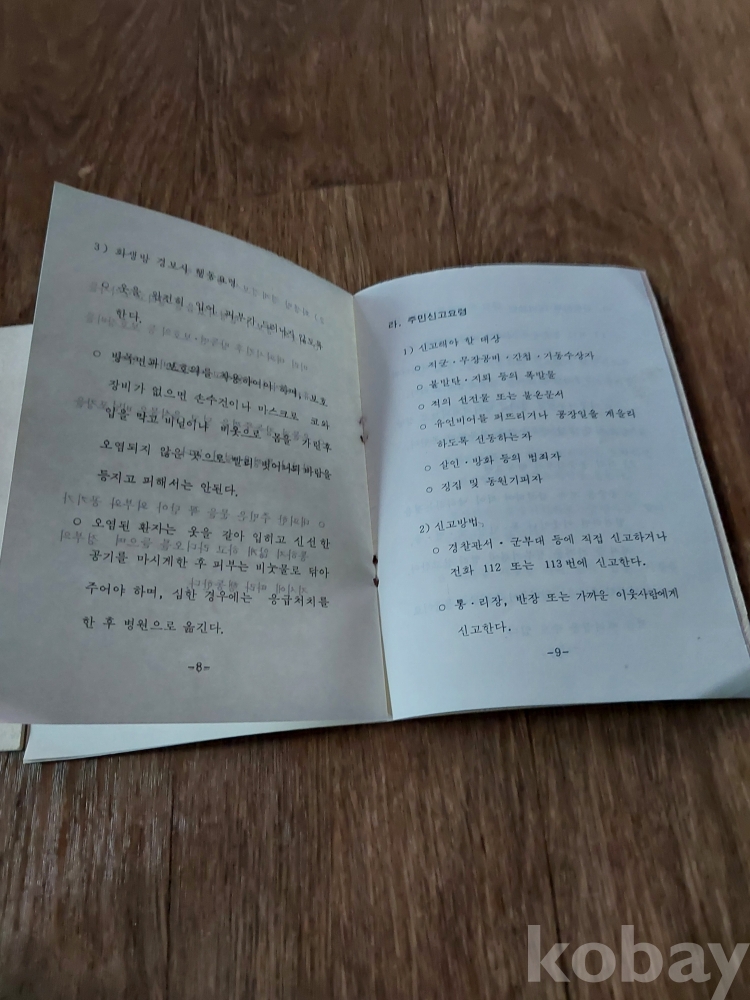 3) 화생방 경보시 행동요령
○ 옷을 완전히 입어 피부가 드러나지 않도록
한다.
○ 방독면과 보호의를 착용하여야 하며, 보호
장비가 없으면 손수건이나 마스크로 코와
입을 막고 비닐이나 비옷으로 몸을 가린후
오염되지 않은 곳으로 빨리 벗어나되 바람을
등지고 피해서는 안된다.
○ 오염된 환자는 옷을 갈아 입히고 신선한
공기를 마시게한 후 피부는 비눗물로 닦아
주어야 하며, 심한 경우에는 응급처치를
한 후 병원으로 옮긴다.
-8-
라. 주민신고요령
1) 신고해야 할 대상
○ 적군·무장공비·간첩·거동수상자
○ 불발탄·지뢰 등의 폭발물
○ 적의 선전물 또는 불온문서
○ 유언비어를 퍼뜨리거나 공장일을 게을리
하도록 선동하는자
○ 살인·방화 등의 범죄자
○ 징집 및 동원기피자
2) 신고방법
○ 경찰관서·군부대 등에 직접 신고하거나
전화 112 또는 113번에 신고한다.
○ 통·리장, 반장 또는 가까운 이웃사람에게
신고한다.
-9-
kobay